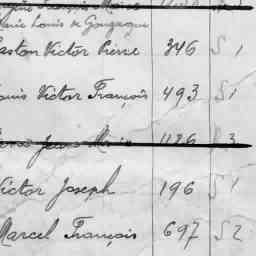 Louis de Gonzague
Gaston Victor Pierre 346 S 1
Louis Victor François 493 S 1
1126 S 3
Victor Joseph 196 S 1
Marcel François 697 S 2